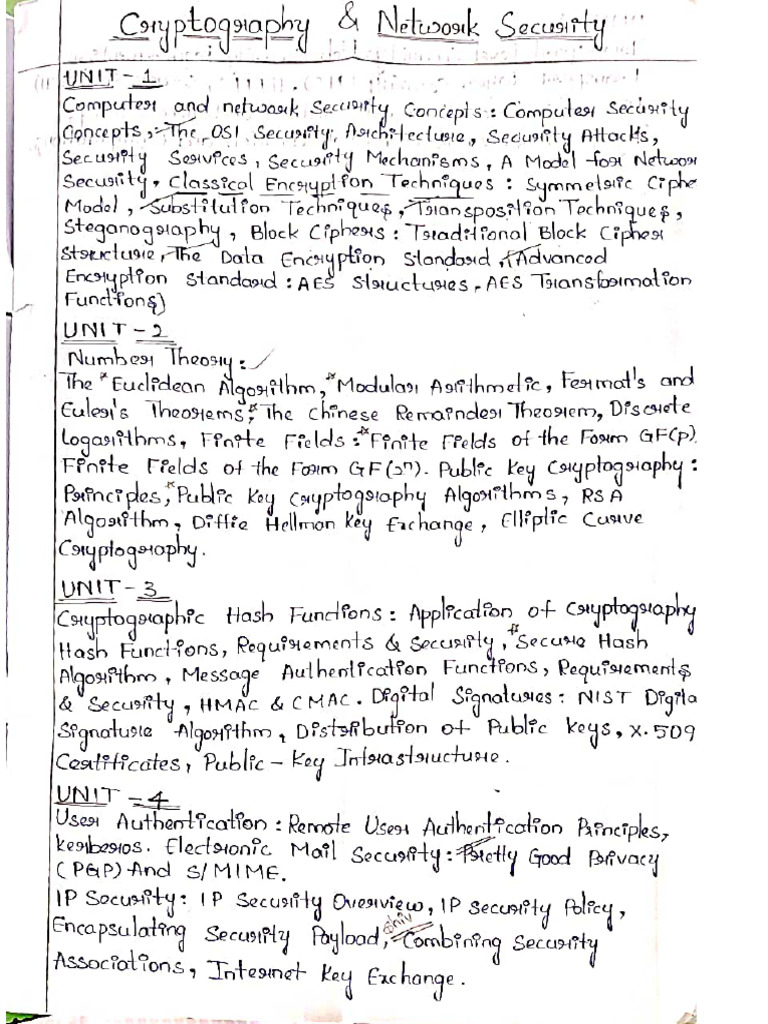 Cryptography & Network Security
UNIT - 1
Computer and network Security Concepts : Computer Security
Concepts, The OSI Security Architecture, Security Attacks,
Security Services, Security Mechanisms, A Model for Networ
Security, Classical Encryption Techniques : Symmetric Ciphe
Model, Substitution Techniques, Transposition Techniques,
Steganography, Block Ciphers : Traditional Block Cipher
Structure, The Data Encryption Standard, (Advanced
Encryption Standard : AES Structures, AES Transformation
Functions)
UNIT - 2
Number Theory :
The *Euclidean Algorithm, *Modular Arithmetic, Fermat's and
Euler's Theorems, *The Chinese Remainder Theorem, Discrete
Logarithms, Finite Fields : *Finite Fields of the Form GF(p)
Finite Fields of the Form GF(2ⁿ). Public Key Cryptography :
Principles, *Public Key Cryptography Algorithms, RSA
Algorithm, Diffie Hellman Key Exchange, Elliptic Curve
Cryptography.
UNIT - 3
Cryptographic Hash Functions : Application of Cryptography
Hash Functions, Requirements & Security, *Secure Hash
Algorithm, Message Authentication Functions, Requirements
& Security, HMAC & CMAC. Digital Signatures : NIST Digita
Signature Algorithm, Distribution of Public Keys, X.509
Certificates, Public - Key Infrastructure.
UNIT - 4
User Authentication : Remote User Authentication Principles,
Kerberos. Electronic Mail Security : Pretty Good Privacy
(PGP) And S/MIME.
IP Security : IP Security Overview, IP Security Policy,
Encapsulating Security Payload, Combining Security
Associations, Internet Key Exchange.